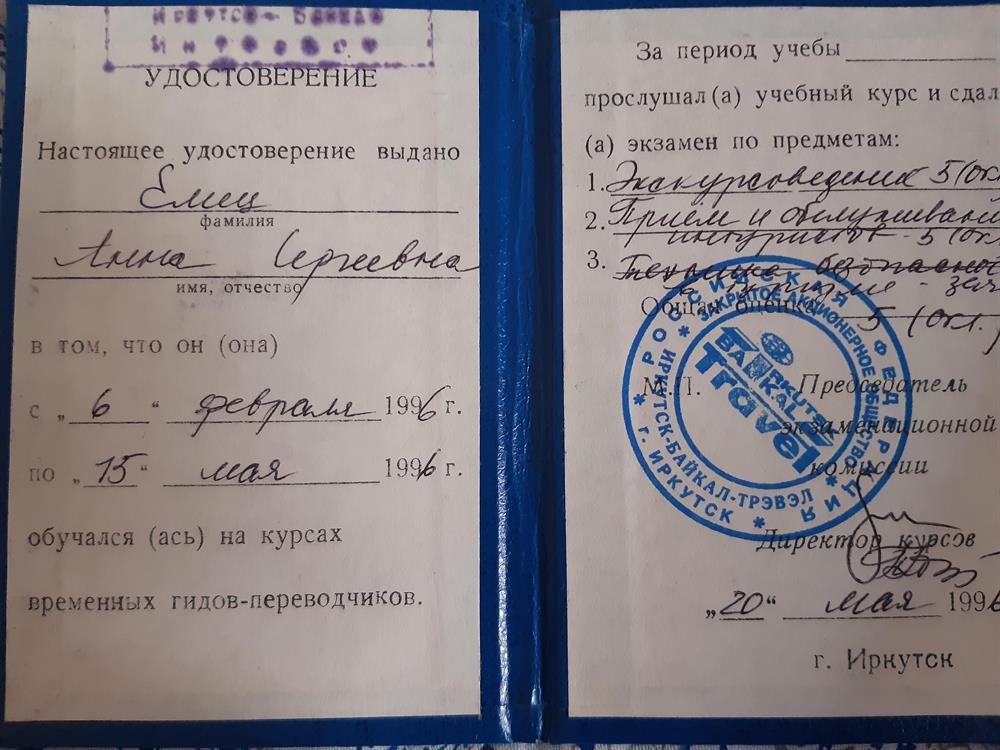 Иркутск-Байкал
Интурист
УДОСТОВЕРЕНИЕ
Настоящее удостоверение выдано
Емец
фамилия
Анна Сергеевна
имя, отчество
в том, что он (она)
с „ 6 “ февраля 1996 г.
по „ 15 “ мая 1996 г.
обучался (ась) на курсах
временных гидов-переводчиков.
За период учебы
прослушал (а) учебный курс и сдал
(а) экзамен по предметам:
1. Экскурсоведения 5 (отл
2. Прием и обслуживан
интуристов - 5 (отл
3. Техника безопаснос
Общая оценка 5 (отл.)
М.П. Председатель
экзаменационной
комиссии
РОССИЙСКАЯ ФЕДЕРАЦИЯ
г. ИРКУТСК
ЗАКРЫТОЕ АКЦИОНЕРНОЕ ОБЩЕСТВО
ИРКУТСК-БАЙКАЛ-ТРЭВЭЛ
IRKUTSK
BAIKAL
Travel
Директор курсов
„ 20 “ мая 1996
г. Иркутск